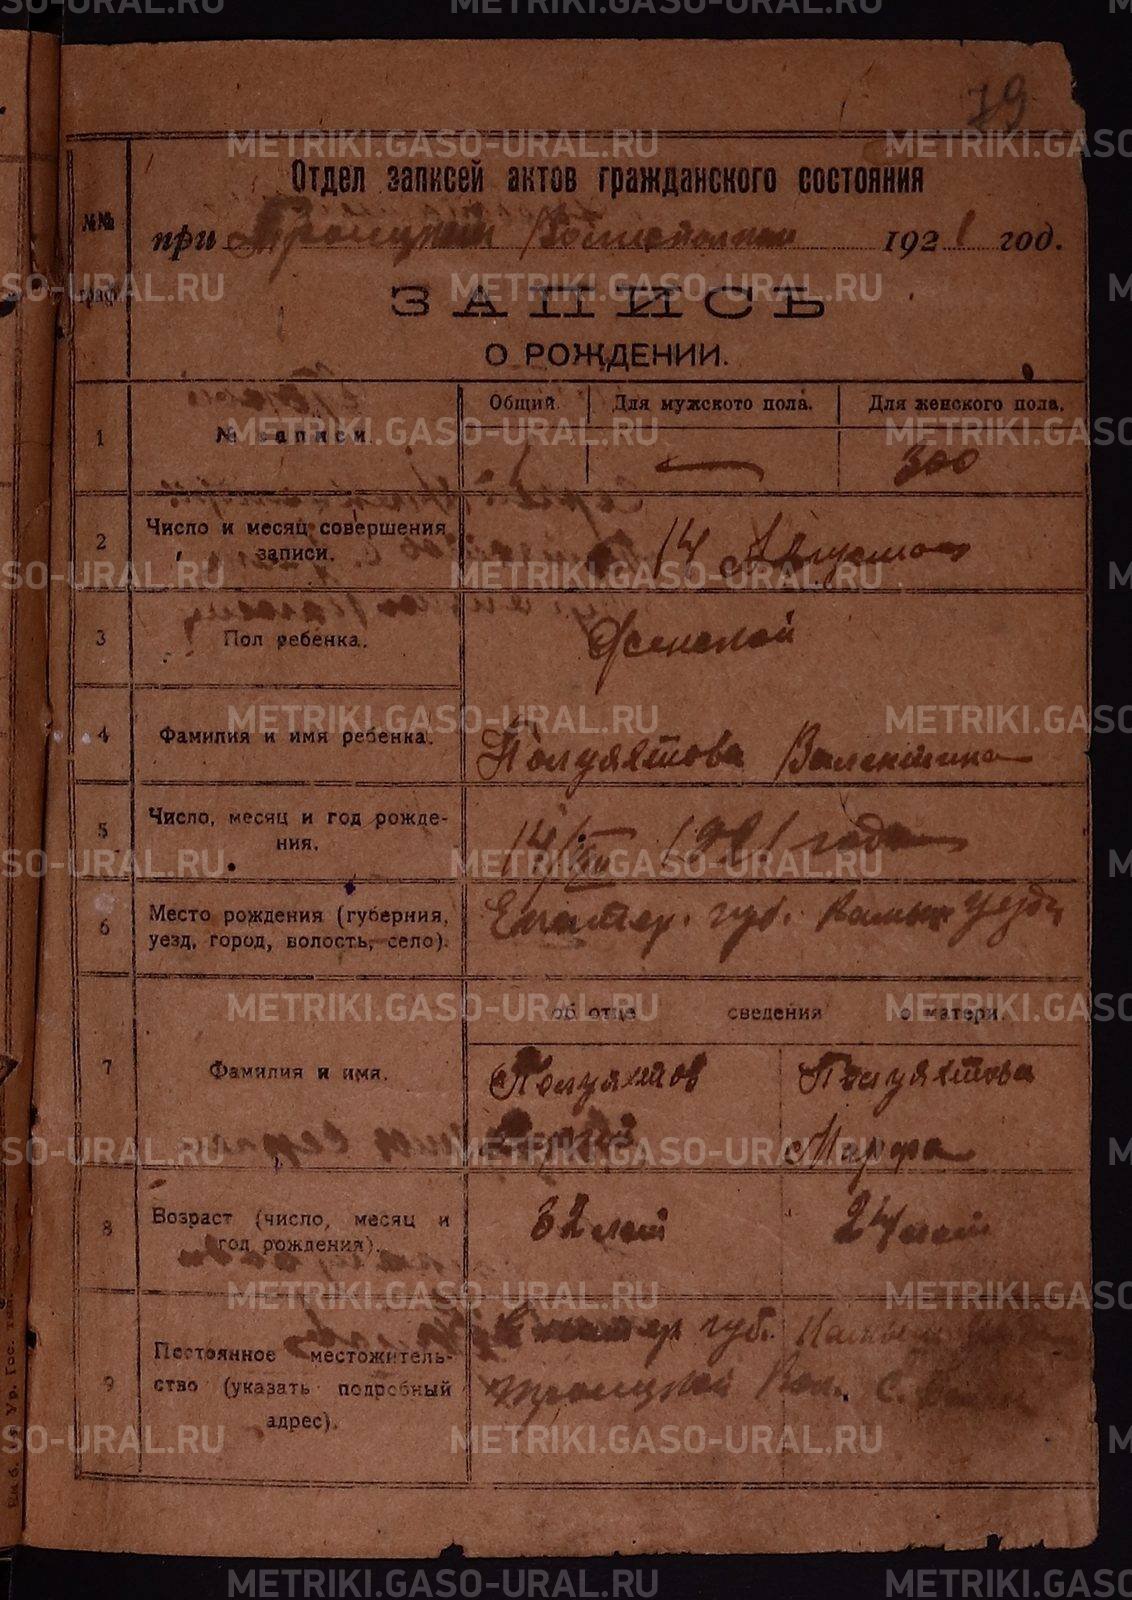 79
Отдел записей актов гражданского состояния
№№ граф
при Троицком Волисполкоме 1921 год.
ЗАПИСЬ
О РОЖДЕНИИ.
Общий. Для мужского пола. Для женского пола.
1 № записи. — 300
2 Число и месяц совершения записи. 14 Августа
3 Пол ребенка. Женской
4 Фамилия и имя ребенка. Полуяхтова Валентина
5 Число, месяц и год рождения. 14/VIII 1921 года
6 Место рождения (губерния, уезд, город, волость, село). Екатер. губ. Камыш. уезда
об отце сведения о матери.
7 Фамилия и имя. Полуяхтов Полуяхтова
Сергей Марфа
8 Возраст (число, месяц и год рождения). 32 лет 24 лет
9 Постоянное местожительство (указать подробный адрес). Екатер. губ. Камыш.
Троицкой Вол. С.
METRIKI.GASO-URAL.RU